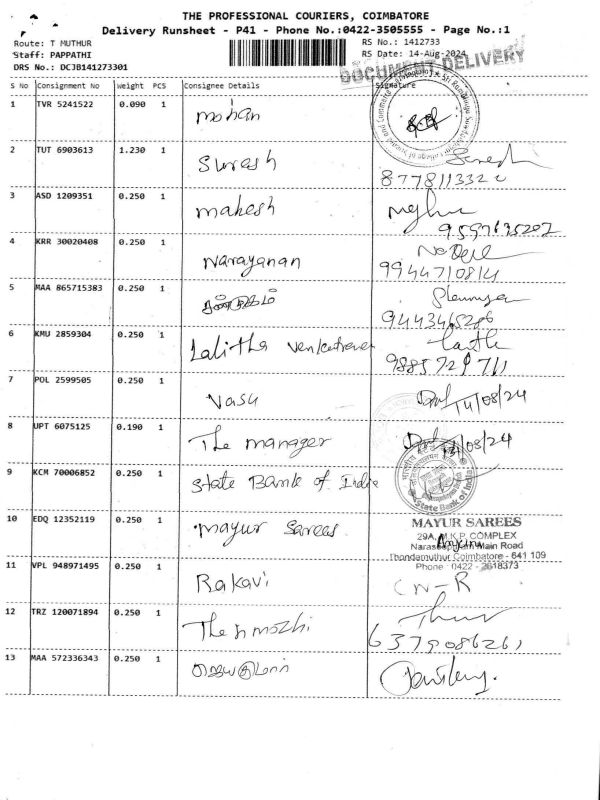 THE PROFESSIONAL COURIERS, COIMBATORE
Delivery Runsheet - P41 - Phone No.:0422-3505555 - Page No.:1
Route: T MUTHUR RS No.: 1412733
Staff: PAPPATHI RS Date: 14-Aug-2024
DRS No.: DCJB141273301
DOCUMENT DELIVERY
S No Consignment No Weight PCS Consignee Details Signature
1 TVR 5241522 0.090 1 mohan
2 TUT 6903613 1.230 1 Suresh Suresh
8778113322
3 ASD 1209351 0.250 1 mahesh
9597635202
4 KRR 30020408 0.250 1 Narayanan
9944710814
5 MAA 865715383 0.250 1
9443465286
6 KMU 2859304 0.250 1 Lalitha
9885729711
7 POL 2599505 0.250 1 Vasu 14/08/24
8 UPT 6075125 0.190 1 The manager 14/08/24
9 KCM 70006852 0.250 1 State Bank of India
State Bank of India
10 EDQ 12352119 0.250 1 mayur Sarees MAYUR SAREES
29A, M.K.P. COMPLEX
Main Road
Thondamuthur Coimbatore - 641 109
Phone : 0422 - 2618373
11 VPL 948971495 0.250 1 Rakavi CN-R
12 TRZ 120071894 0.250 1 Thenmozhi
6379086261
13 MAA 572336343 0.250 1 ஜெயகுமார்